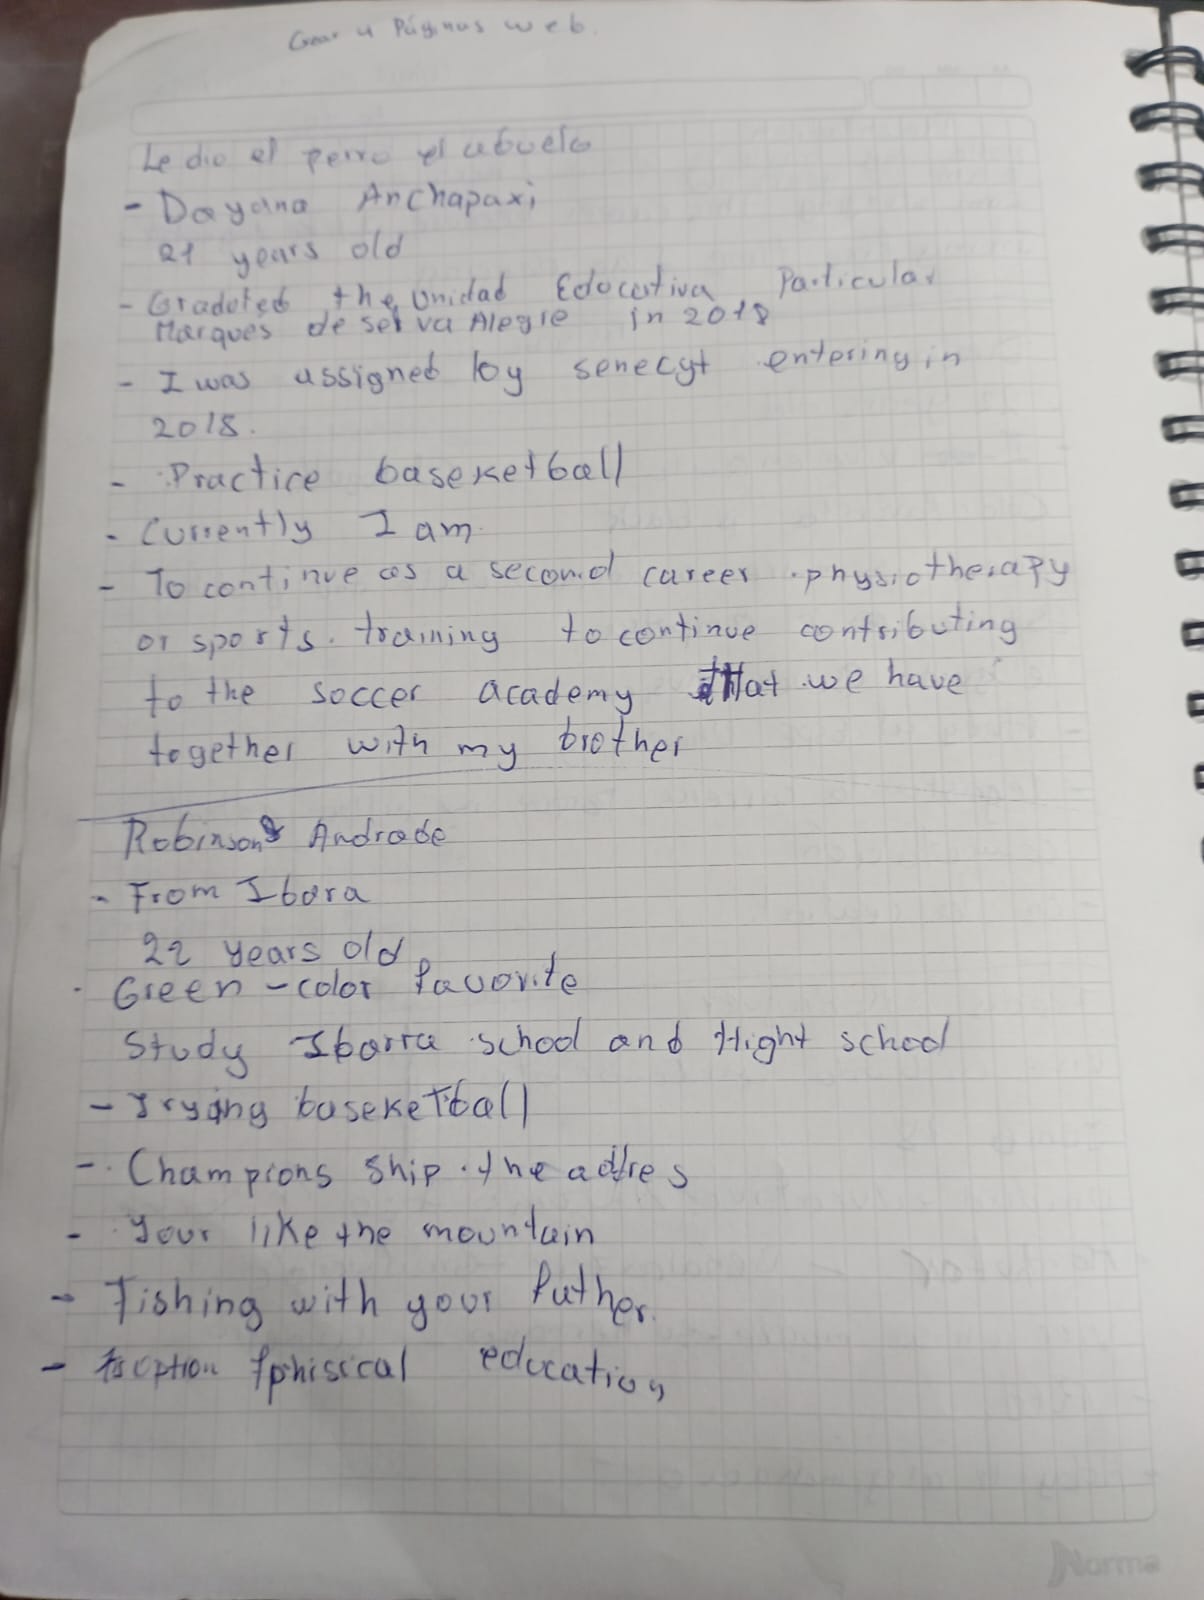 Crear 4 Páginas web.
Le dio el perro el abuelo
- Dayana Anchapaxi
21 years old
- Gradoted the Unidad Educativa Particular
Marques de selva Alegre in 2018
- I was assigned by senecyt entering in
2018.
- Practice baseketball
- Currently I am
- To continue as a second career physiotherapy
or sports. training to continue contributing
to the soccer academy that we have
together with my brother
Robinson Andrade
- From Ibara
22 years old
Green - color favorite
Study Ibarra school and Hight school
- Trying baseketball
- Champions Ship. the
- Your like the mountain
- Fishing with your father.
- education
Norma